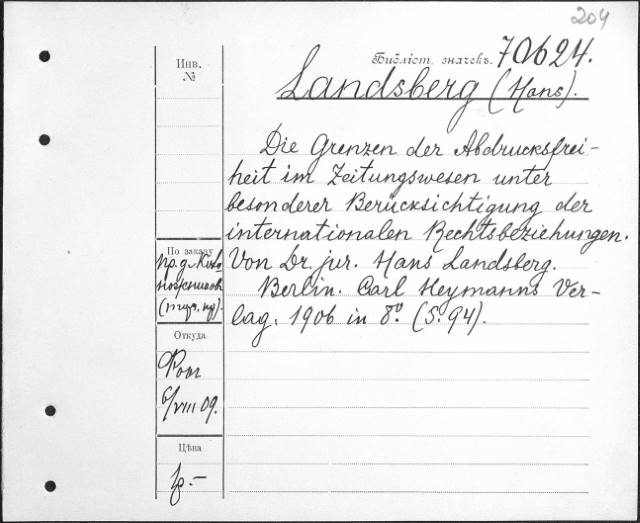 204
Инв.
№
Библіот. значекъ. 70624.
Landsberg (Hans).
Die Grenzen der Abdrucksfrei-
heit im Zeitungswesen unter
besonderer Berücksichtigung der
internationalen Rechtsbeziehungen.
Von Dr. jur. Hans Landsberg.
Berlin. Carl Heymanns Ver-
lag, 1906 in 8º. (S. 94).
По заказу
Откуда
6/VIII 09.
Цѣна